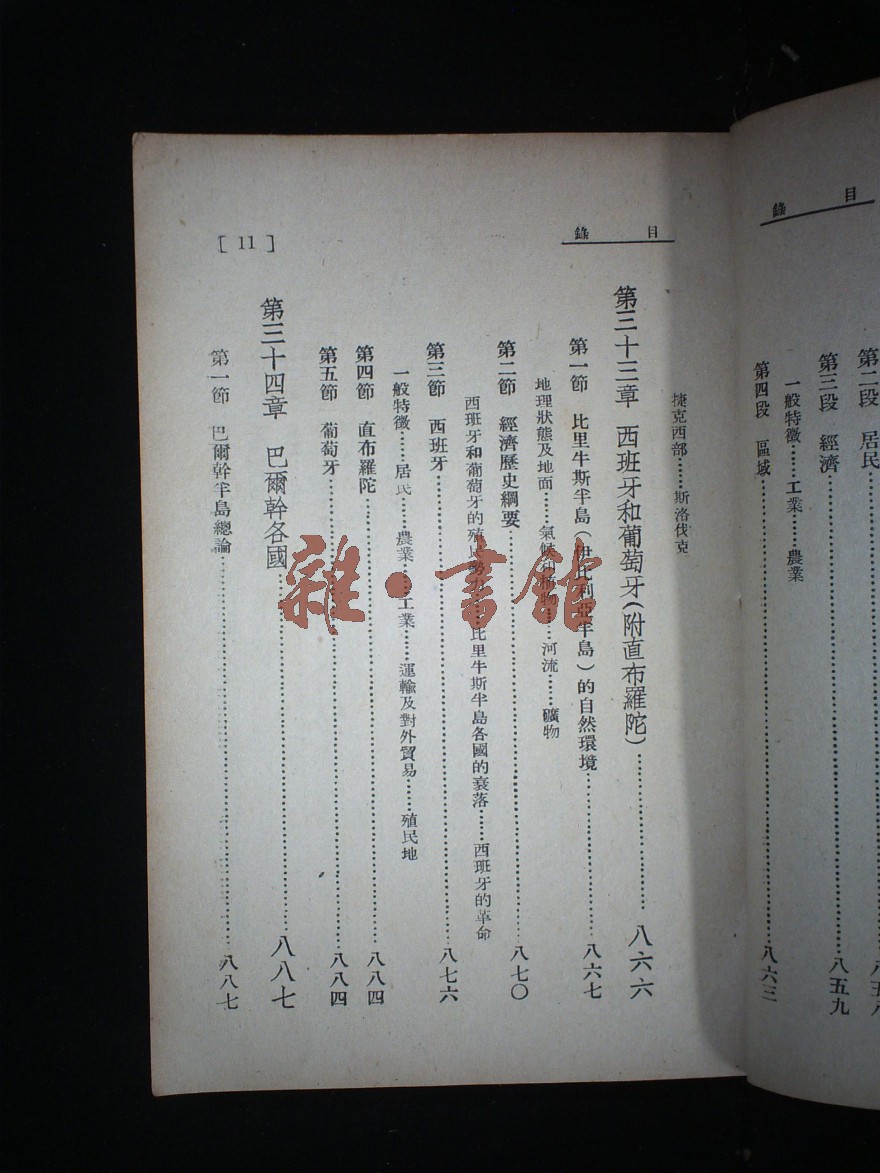 目錄
第二段 居民
第三段 經濟……八五九
一般特徵……工業……農業
第四段 區域……八六三
目錄
[ 11 ]
捷克西部……斯洛伐克
第三十三章 西班牙和葡萄牙(附直布羅陀)……八六六
第一節 比里牛斯半島(伊比利亞半島)的自然環境……八六七
地理狀態及地面……氣候和植物……河流……礦物
第二節 經濟歷史綱要……八七〇
西班牙和葡萄牙的殖民勢力……比里牛斯半島各國的衰落……西班牙的革命
第三節 西班牙……八七六
一般特徵……居民……農業……工業……運輸及對外貿易……殖民地
第四節 直布羅陀……八八四
第五節 葡萄牙……八八四
第三十四章 巴爾幹各國……八八七
第一節 巴爾幹半島總論……八八七
雜·書館